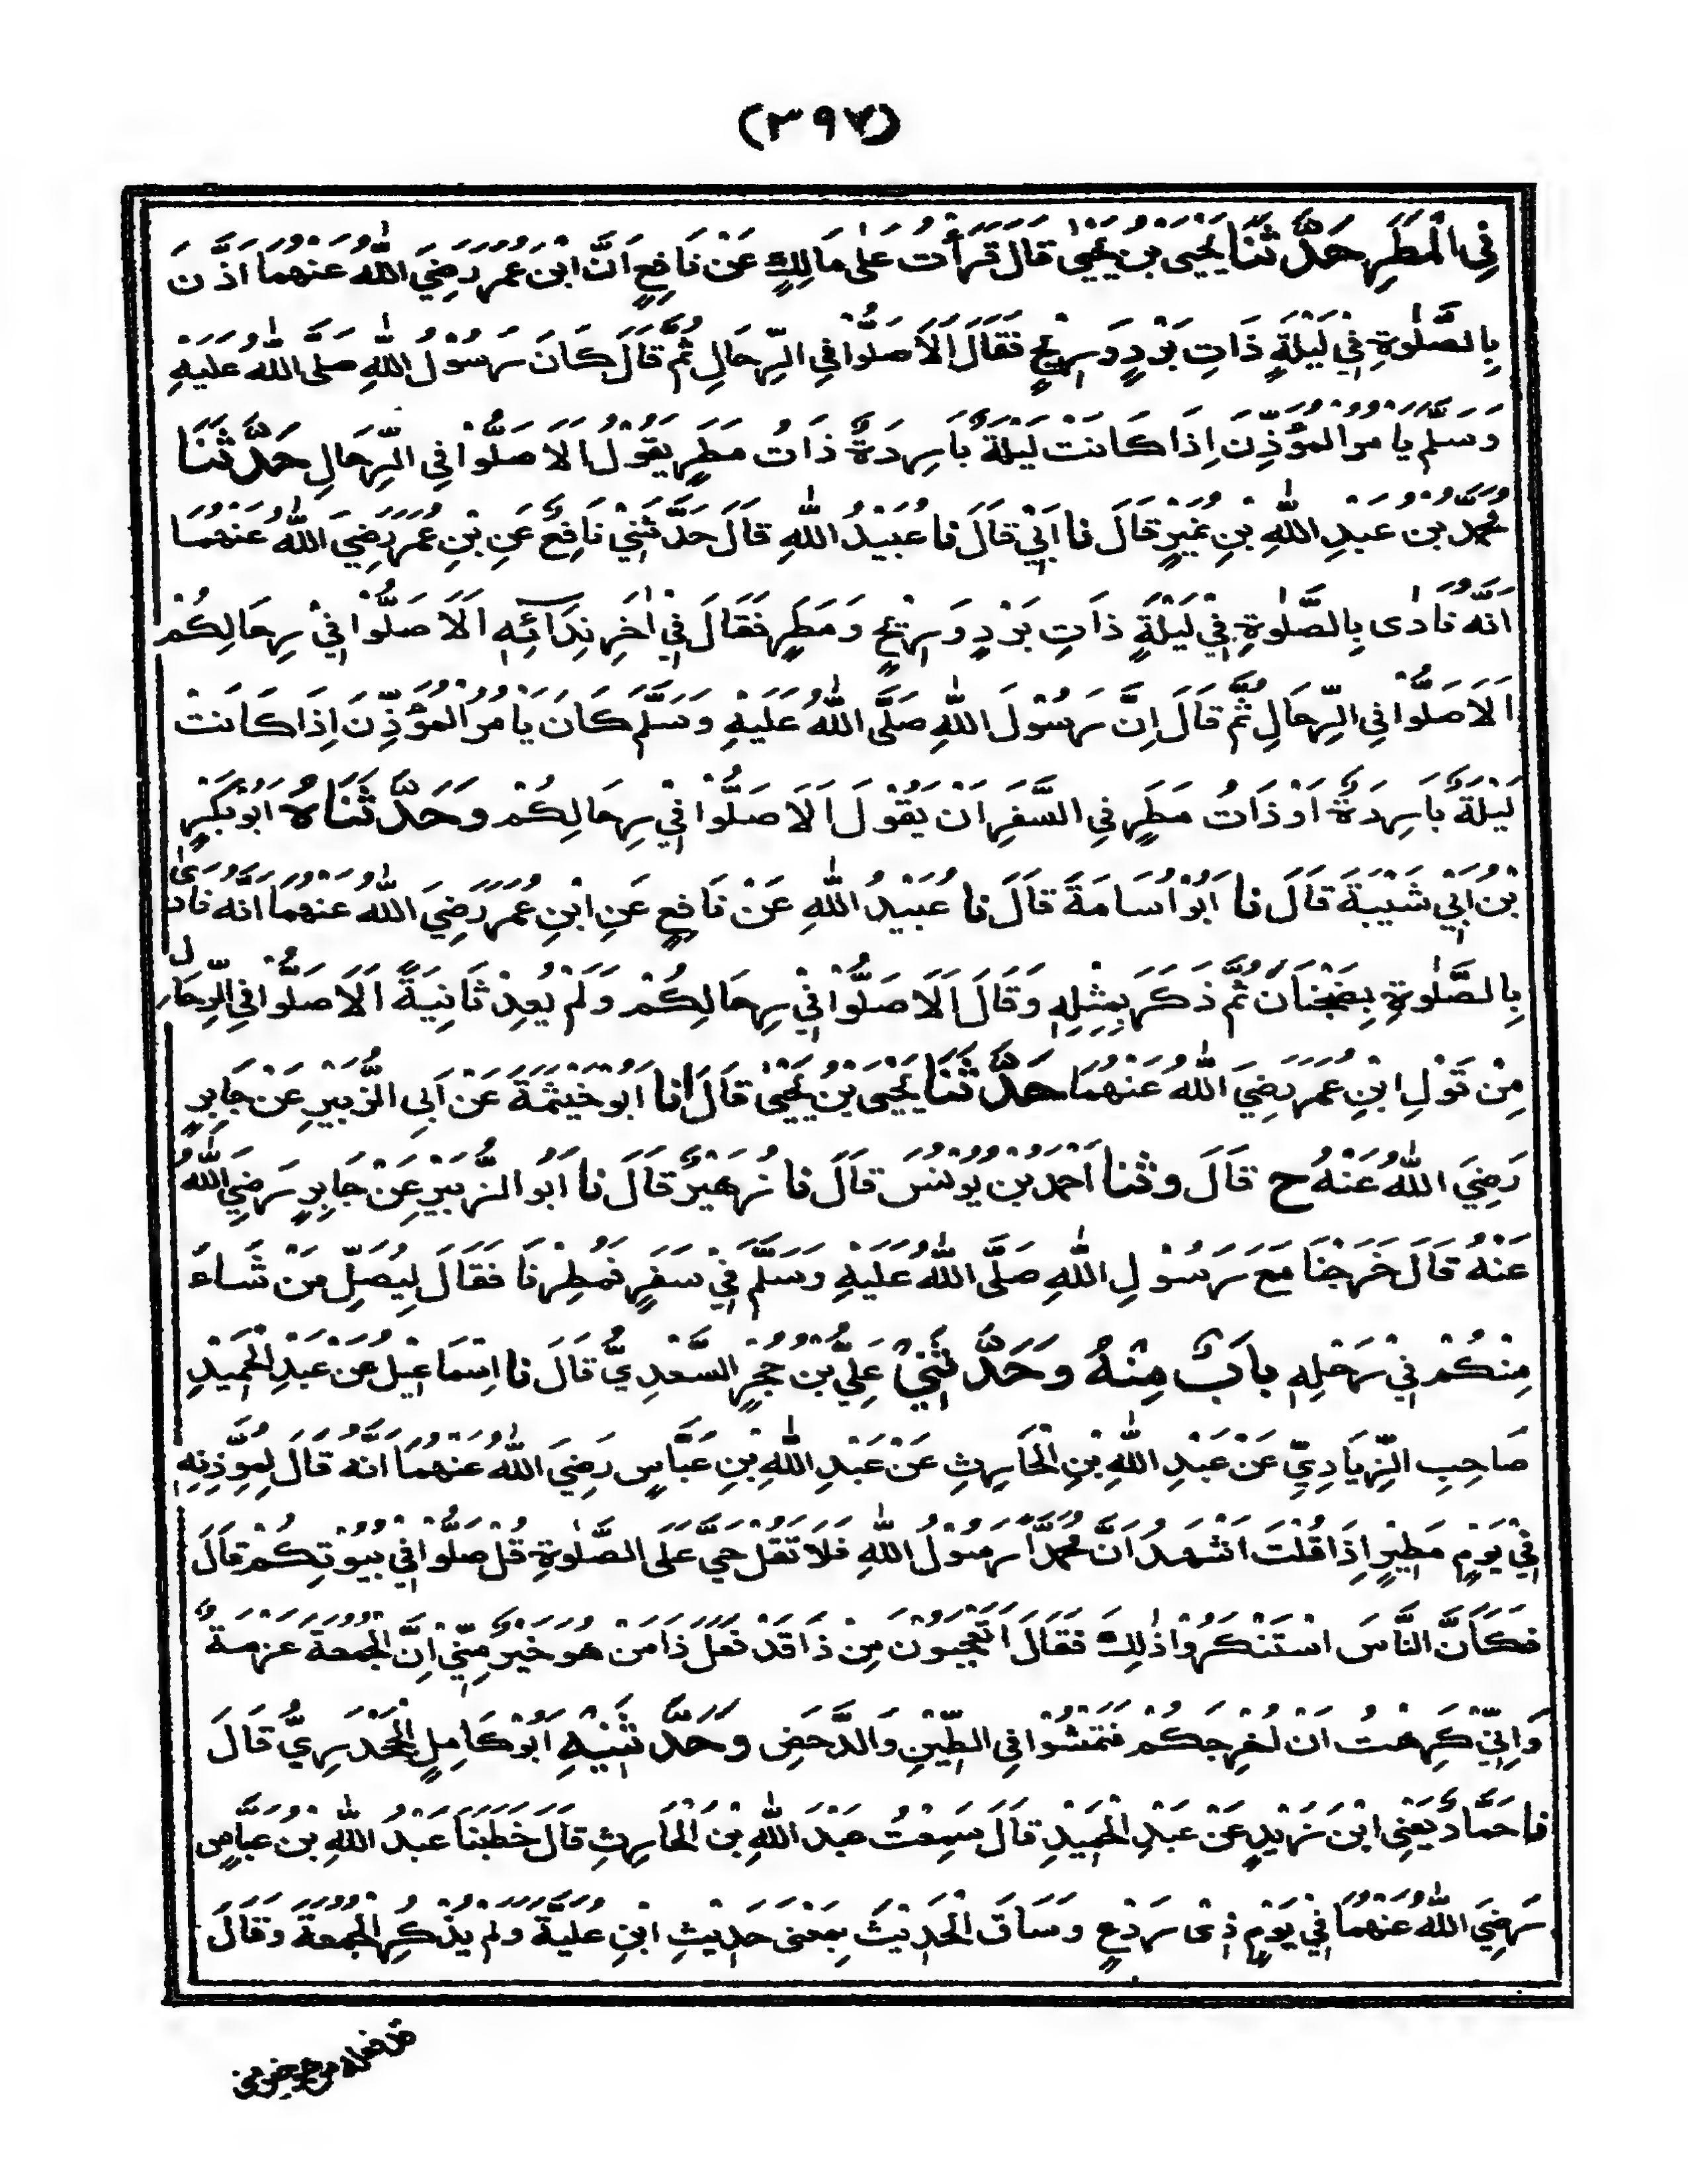 (٣٩٧)
فِي الْمَطَرِ حَدَّثَنَا يَحْيَى بْنُ يَحْيٰى قَالَ قَرَأْتُ عَلٰى مَالِكٍ عَنْ نَافِعٍ اَنَّ ابْنَ عُمَرَ رَضِيَ اللّٰهُ عَنْهُمَا اَذَّنَ
بِالصَّلٰوةِ فِيْ لَيْلَةٍ ذَاتِ بَرْدٍ وَرِيْحٍ فَقَالَ اَلَا صَلُّوْا فِي الرِّحَالِ ثُمَّ قَالَ كَانَ رَسُوْلُ اللّٰهِ صَلَّى اللّٰهُ عَلَيْهِ
وَسَلَّمَ يَأْمُرُ الْمُؤَذِّنَ اِذَا كَانَتْ لَيْلَةٌ بَارِدَةٌ ذَاتُ مَطَرٍ يَقُوْلُ اَلَا صَلُّوْا فِي الرِّحَالِ حَدَّثَنَا
مُحَمَّدُ بْنُ عَبْدِ اللّٰهِ بْنِ نُمَيْرٍ قَالَ نَا اَبِيْ قَالَ نَا عُبَيْدُ اللّٰهِ قَالَ حَدَّثَنِيْ نَافِعٌ عَنِ بْنِ عُمَرَ رَضِيَ اللّٰهُ عَنْهُمَا
اَنَّهُ نَادٰى بِالصَّلٰوةِ فِيْ لَيْلَةٍ ذَاتِ بَرْدٍ وَرِيْحٍ وَمَطَرٍ فَقَالَ فِيْ اٰخِرِ نِدَآئِهٖ اَلَا صَلُّوْا فِيْ رِحَالِكُمْ
اَلَا صَلُّوْا فِي الرِّحَالِ ثُمَّ قَالَ اِنَّ رَسُوْلَ اللّٰهِ صَلَّى اللّٰهُ عَلَيْهِ وَسَلَّمَ كَانَ يَأْمُرُ الْمُؤَذِّنَ اِذَا كَانَتْ
لَيْلَةٌ بَارِدَةٌ اَوْ ذَاتُ مَطَرٍ فِي السَّفَرِ اَنْ يَقُوْلَ اَلَا صَلُّوْا فِيْ رِحَالِكُمْ وَحَدَّثَنَاهُ اَبُوْ بَكْرِ
بْنُ اَبِيْ شَيْبَةَ قَالَ نَا اَبُوْ اُسَامَةَ قَالَ نَا عُبَيْدُ اللّٰهِ عَنْ نَافِعٍ عَنِ ابْنِ عُمَرَ رَضِيَ اللّٰهُ عَنْهُمَا اَنَّهُ نَادٰى
بِالصَّلٰوةِ بِضَجْنَانَ ثُمَّ ذَكَرَ بِمِثْلِهٖ وَقَالَ اَلَا صَلُّوْا فِيْ رِحَالِكُمْ وَلَمْ يُعِدْ ثَانِيَةً اَلَا صَلُّوْا فِي الرِّحَالِ
مِنْ قَوْلِ ابْنِ عُمَرَ رَضِيَ اللّٰهُ عَنْهُمَا حَدَّثَنَا يَحْيَى بْنُ يَحْيٰى قَالَ اَنَا اَبُوْ خَيْثَمَةَ عَنْ اَبِي الزُّبَيْرِ عَنْ جَابِرٍ
رَضِيَ اللّٰهُ عَنْهُ ح قَالَ وَثَنَا اَحْمَدُ بْنُ يُوْنُسَ قَالَ نَا زُهَيْرٌ قَالَ نَا اَبُو الزُّبَيْرِ عَنْ جَابِرٍ رَضِيَ اللّٰهُ
عَنْهُ قَالَ خَرَجْنَا مَعَ رَسُوْلِ اللّٰهِ صَلَّى اللّٰهُ عَلَيْهِ وَسَلَّمَ فِيْ سَفَرٍ فَمُطِرْنَا فَقَالَ لِيُصَلِّ مَنْ شَاءَ
مِنْكُمْ فِيْ رَحْلِهٖ بَابٌ مِنْهُ وَحَدَّثَنِيْ عَلِيُّ بْنُ حُجْرٍ السَّعْدِيُّ قَالَ نَا اِسْمَاعِيْلُ عَنْ عَبْدِ الْحَمِيْدِ
صَاحِبِ الزِّيَادِيِّ عَنْ عَبْدِ اللّٰهِ بْنِ الْحَارِثِ عَنْ عَبْدِ اللّٰهِ بْنِ عَبَّاسٍ رَضِيَ اللّٰهُ عَنْهُمَا اَنَّهُ قَالَ لِمُؤَذِّنِهٖ
فِيْ يَوْمٍ مَطِيْرٍ اِذَا قُلْتَ اَشْهَدُ اَنَّ مُحَمَّدًا رَسُوْلُ اللّٰهِ فَلَا تَقُلْ حَيَّ عَلَى الصَّلٰوةِ قُلْ صَلُّوْا فِيْ بُيُوْتِكُمْ قَالَ
فَكَاَنَّ النَّاسَ اسْتَنْكَرُوْا ذٰلِكَ فَقَالَ اَتَعْجَبُوْنَ مِنْ ذَا قَدْ فَعَلَ ذَا مَنْ هُوَ خَيْرٌ مِنِّيْ اِنَّ الْجُمُعَةَ عَزْمَةٌ
وَاِنِّيْ كَرِهْتُ اَنْ اُخْرِجَكُمْ فَتَمْشُوْا فِي الطِّيْنِ وَالدَّحَضِ وَحَدَّثَنِيْهِ اَبُوْ كَامِلٍ الْجَحْدَرِيُّ قَالَ
نَا حَمَّادٌ يَعْنِي ابْنَ زَيْدٍ عَنْ عَبْدِ الْحَمِيْدِ قَالَ سَمِعْتُ عَبْدَ اللّٰهِ بْنَ الْحَارِثِ قَالَ خَطَبَنَا عَبْدُ اللّٰهِ بْنُ عَبَّاسٍ
رَضِيَ اللّٰهُ عَنْهُمَا فِيْ يَوْمٍ ذِيْ رَدْغٍ وَسَاقَ الْحَدِيْثَ بِمَعْنٰى حَدِيْثِ ابْنِ عُلَيَّةَ وَلَمْ يَذْكُرِ الْجُمُعَةَ وَقَالَ